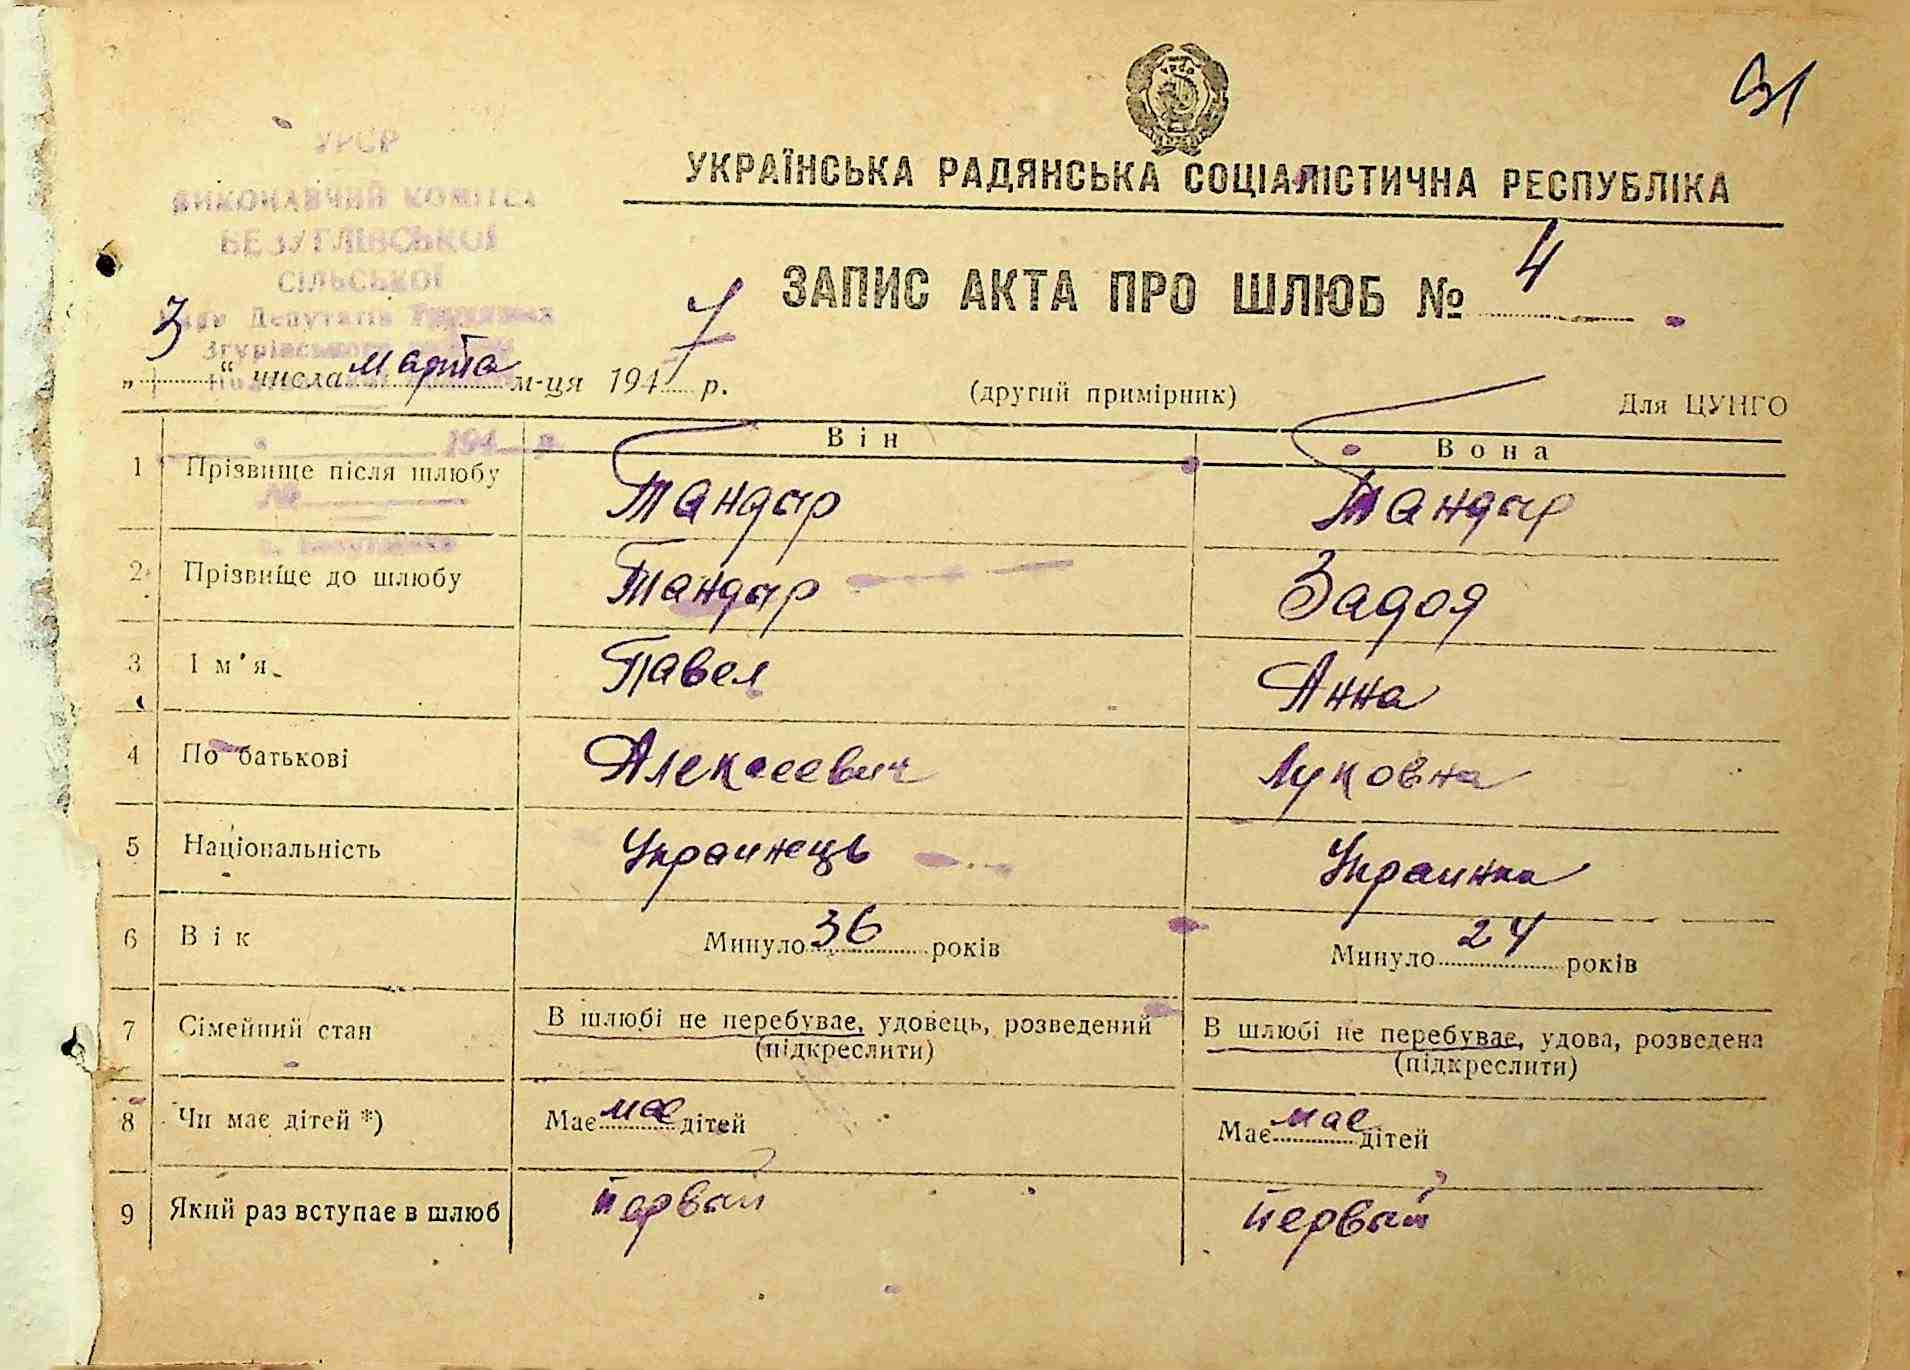 91
УРСР
УКРАЇНСЬКА РАДЯНСЬКА СОЦІАЛІСТИЧНА РЕСПУБЛІКА
ВИКОНАВЧИЙ КОМІТЕТ
БЕЗУГЛІВСЬКОЇ
СІЛЬСЬКОЇ
Ради Депутатів Трудящих
Згурівського
ЗАПИС АКТА ПРО ШЛЮБ № 4
„ 3 “ числа марта м-ця 1947 р.
(другий примірник)
Для ЦУНГО
194 р.
Він Вона
1 Прізвище після шлюбу Тандыр Тандыр
№
2 Прізвище до шлюбу Тандыр Задоя
3 Ім'я Павел Анна
4 По батькові Алексеевич Луковна
5 Національність Украинець Украинка
6 Вік Минуло 36 років Минуло 24 років
7 Сімейний стан В шлюбі не перебуває, удовець, розведений В шлюбі не перебуває, удова, розведена
(підкреслити) (підкреслити)
8 Чи має дітей *) Має мае дітей Має мае дітей
9 Який раз вступає в шлюб первый первый